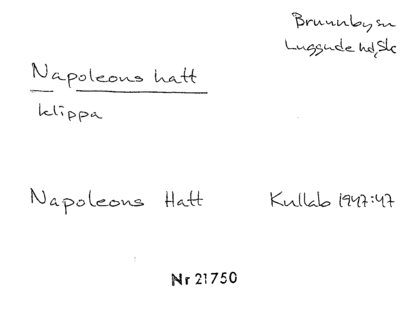 Brunnby sn
Luggude hd, Sk
Napoleons hatt
klippa
Napoleons Hatt Kullab 1947:47
Nr 21750